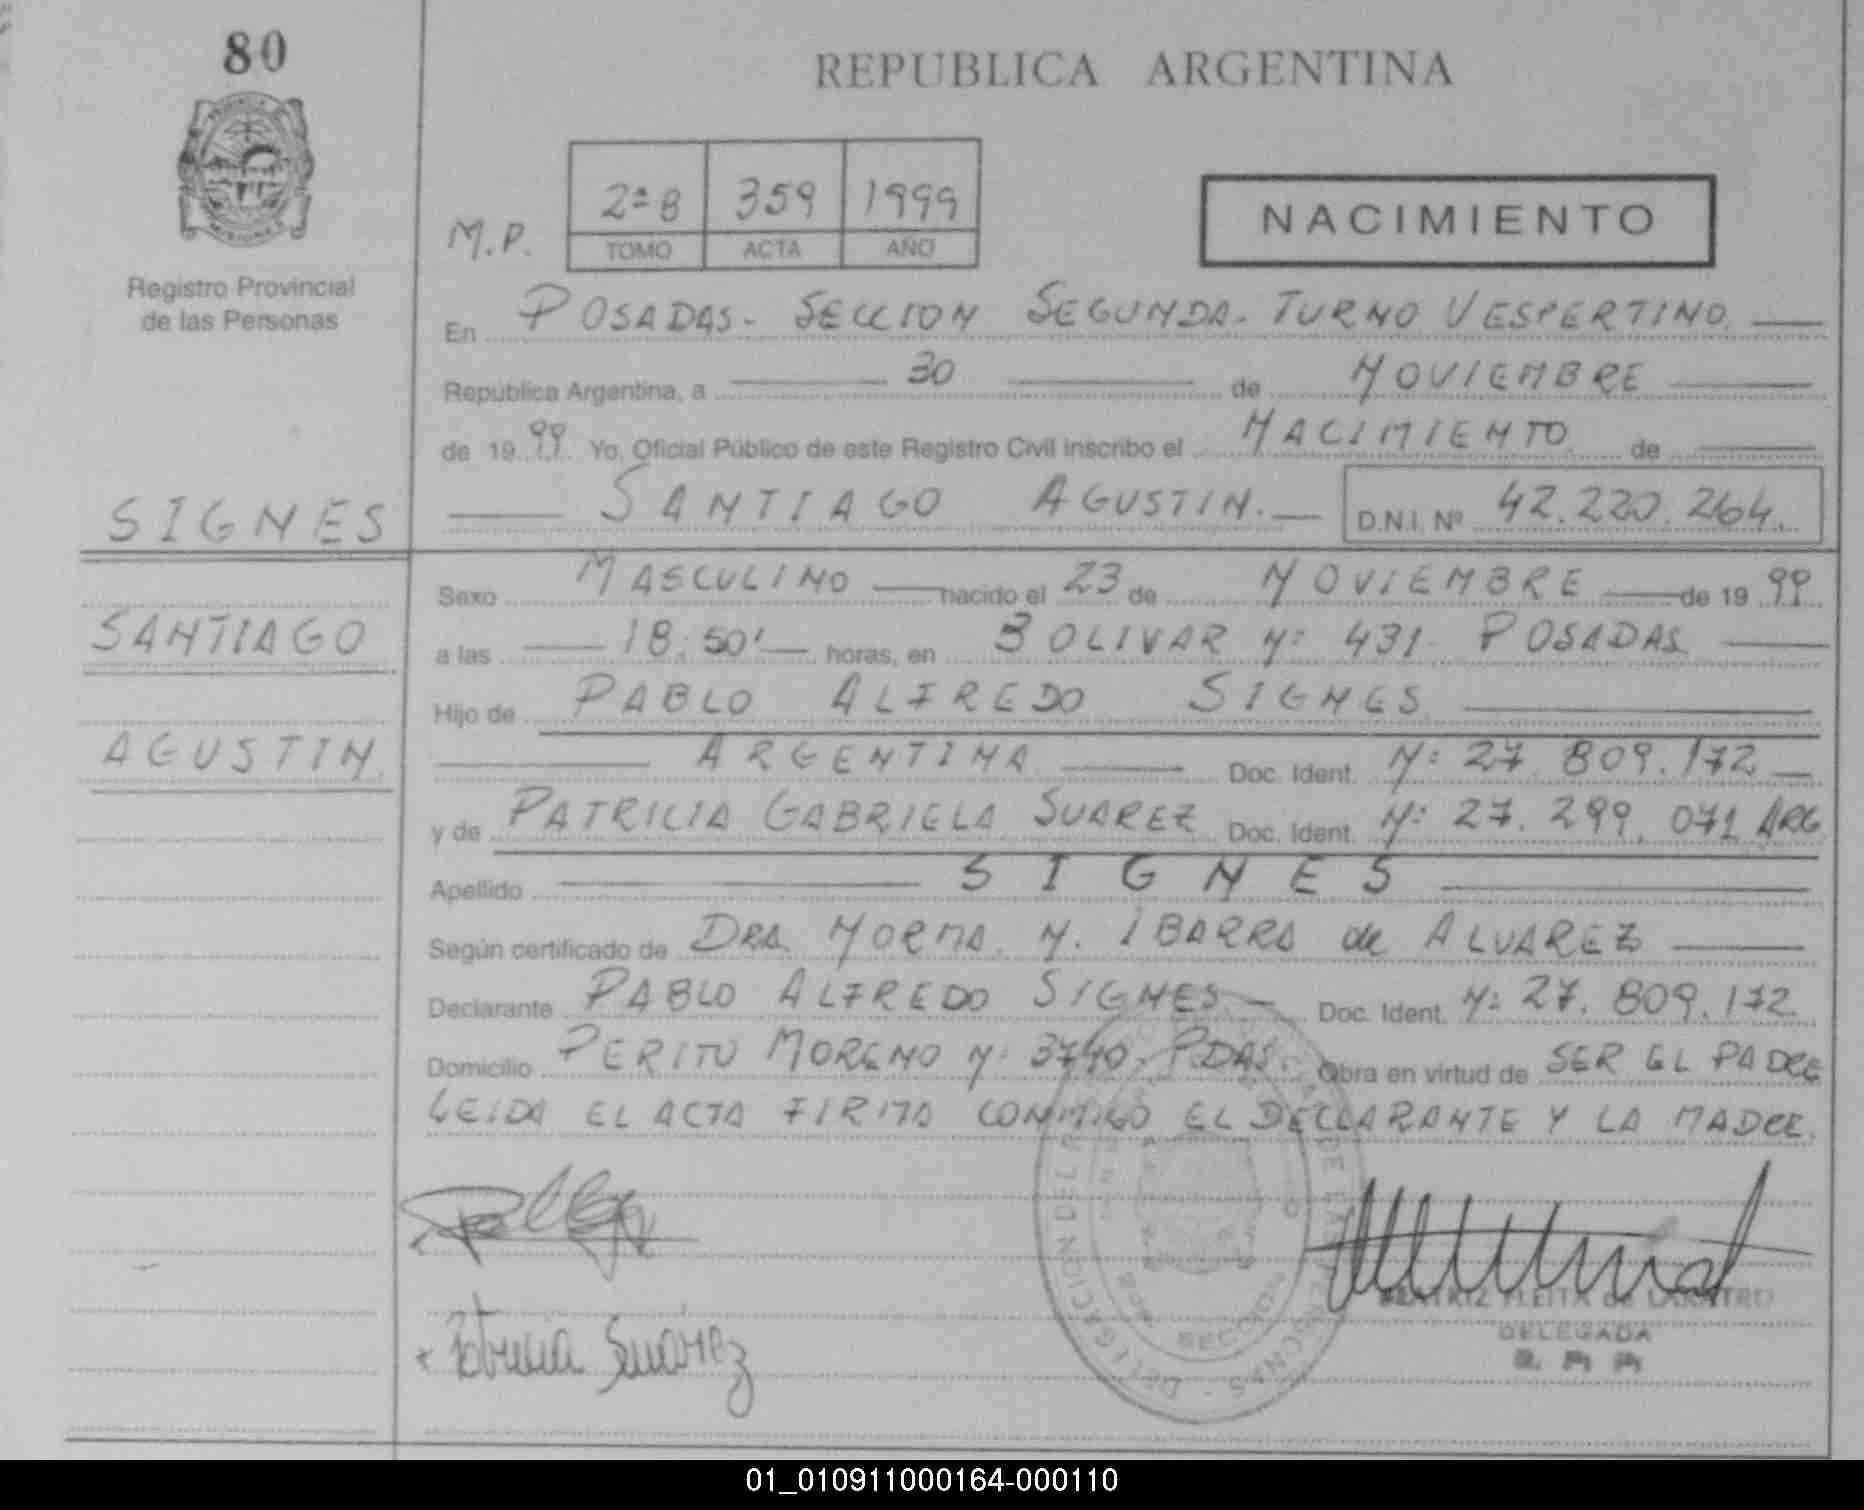 80
REPUBLICA ARGENTINA
Registro Provincial
de las Personas
M.P.
2ª B 359 1999
TOMO ACTA AÑO
NACIMIENTO
En POSADAS- SECCION SEGUNDA- TURNO VESPERTINO.
República Argentina, a 30 de NOVIEMBRE
de 1999 Yo, Oficial Público de este Registro Civil inscribo el NACIMIENTO de
SIGNES
SANTIAGO AGUSTIN. D.N.I. Nº 42.220.264.
Sexo MASCULINO nacido el 23 de NOVIEMBRE de 1999
SANTIAGO
a las 18:50' horas, en BOLIVAR Nº 431- POSADAS
Hijo de PABLO ALFREDO SIGNES
AGUSTIN
ARGENTINA Doc. Ident. Nº 27.809.172
y de PATRICIA GABRIELA SUAREZ Doc. Ident. Nº 27.299.071 ARG
Apellido SIGNES
Según certificado de DRA. NORMA N. IBARRA de ALVAREZ
Declarante PABLO ALFREDO SIGNES Doc. Ident. Nº 27.809.172
Domicilio PERITO MORENO Nº 3740- PDAS. Obra en virtud de SER EL PADRE
LEIDA EL ACTA FIRMA CONMIGO EL DECLARANTE Y LA MADRE.
Patricia Suárez
BEATRIZ FLEITA de
DELEGADA
SECCION
01_010911000164-000110